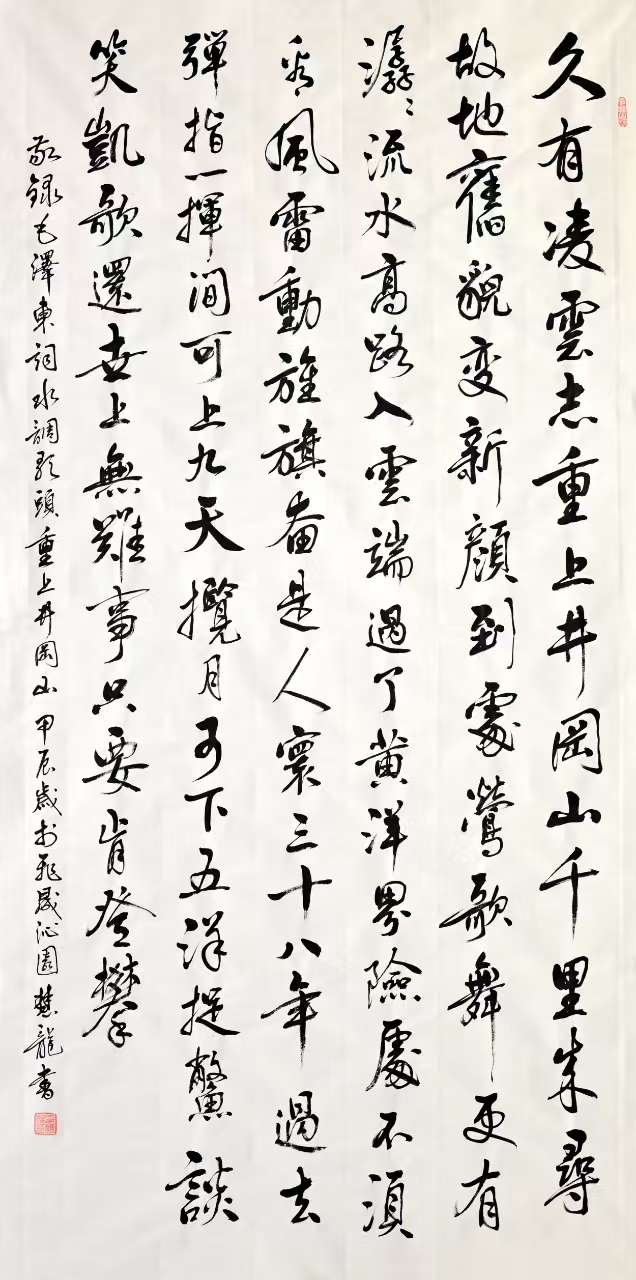 久有凌雲志重上井岡山千里来尋
故地舊貌变新顔到處鶯歌舞更有
潺〻流水高路入雲端過了黄洋界險處不須
看風雷動旌旗奮是人寰三十八年過去
彈指一揮間可上九天攬月可下五洋捉鱉談
笑凱歌還世上無難事只要肯登攀
敬録毛澤東詞水調歌頭重上井岡山甲辰歲於晟沁園龍書